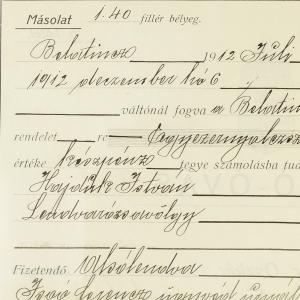 Másolat 1.40 fillér bélyeg.
Belatincz 1912 Juli
1912 deczember hó 6
váltónál fogva a Belatin
rendelet re Egyezernyolczsz
értéke készpénz tegye számolásba tud
Hajdúk István
Lendvarózsavölgy
Fizetendő Alsólendva
ügyvéd